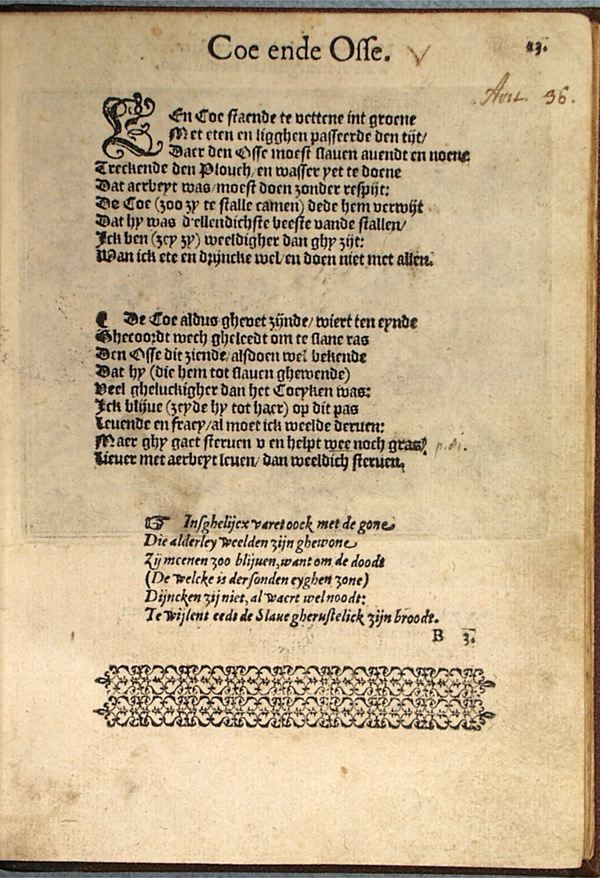 Coe ende Osse. V
23.
Avu. 36.
EEn Coe staende te vettene int groene
Met eten en ligghen passeerde den tijt/
Daer den Osse moest slauen auendt en noene
Treckende den Plouch/en wasser yet te doene
Dat aerbeyt was/moest doen zonder respijt:
De Coe (zoo zy te stalle camen) dede hem verwijt
Dat hy was d'ellendichste beeste vande stallen/
Ick ben (zey zy) weeldigher dan ghy zijt:
Wan ick ete en drijncke wel/en doen niet met allen.
¶ De Coe aldus ghevet zijnde/wiert ten eynde
Ghecoordt wech gheleedt om te slane ras
Den Osse dit ziende/alsdoen wel bekende
Dat hy (die hem tot slauen ghewende)
Veel gheluckigher dan het Coeyken was:
Ick blijue (zeyde hy tot haer) op dit pas
Leuende en fraey/al moet ick weelde deruen:
Maer ghy gaet steruen v en helpt wee noch gras/ p.81.
Liever met aerbeyt leuen/dan weeldich steruen.
☞ Insghelijcx varet oock met de gone
Die alderley weelden zijn ghewone
Zij meenen zoo blijuen, want om de doodt
(De welcke is der sonden eyghen zone)
Dijncken zij niet, al waert wel noodt:
Te wijlent eedt de Slaue gherustelick zijn broodt.
B 3.